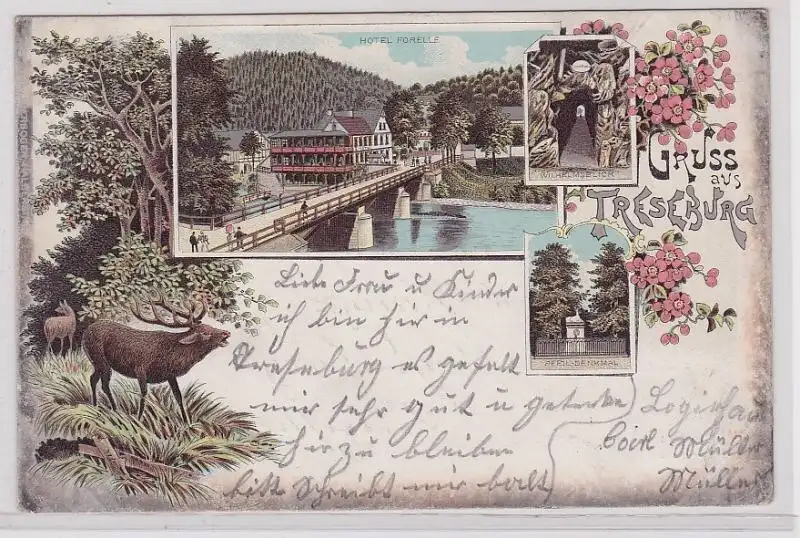 HOTEL FORELLE
WILHELMSBLICK
Gruss
aus
Treseburg
PFEIL-DENKMAL
Liebe Frau u Kinder
ich bin hir in
Treseburg es gefalt
mir sehr gut u getenke
hir zu bleiben
bitt schreibt mir balt
Logierhau
Müller
Müller